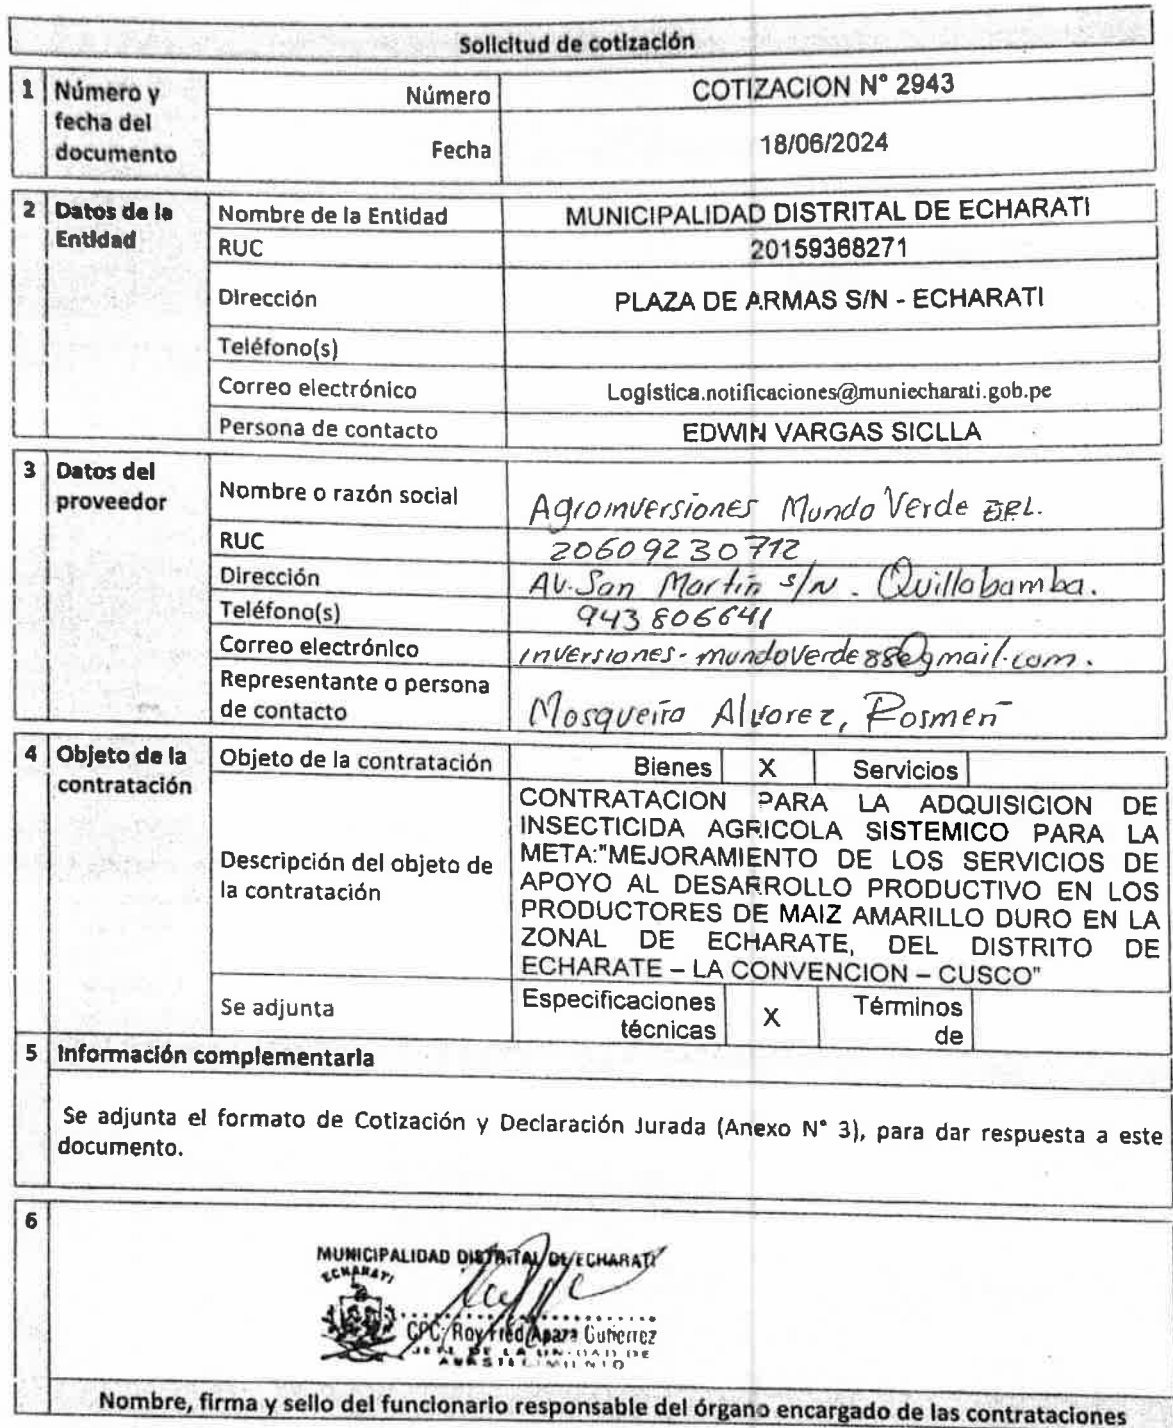 Solicitud de cotización
1 Número y fecha del documento
Número COTIZACION N° 2943
Fecha 18/06/2024
2 Datos de la Entidad
Nombre de la Entidad MUNICIPALIDAD DISTRITAL DE ECHARATI
RUC 20159368271
Dirección PLAZA DE ARMAS S/N - ECHARATI
Teléfono(s)
Correo electrónico Logistica.notificaciones@muniecharati.gob.pe
Persona de contacto EDWIN VARGAS SICLLA
3 Datos del proveedor
Nombre o razón social Agroinversiones Mundo Verde
RUC 20609230712
Dirección AV. San Martin s/N. Quillabamba.
Teléfono(s) 943806641
Correo electrónico inversiones-mundoverde88@gmail.com.
Representante o persona de contacto Mosqueira Alvarez,
4 Objeto de la contratación
Objeto de la contratación Bienes X Servicios
Descripción del objeto de la contratación
CONTRATACION PARA LA ADQUISICION DE
INSECTICIDA AGRICOLA SISTEMICO PARA LA
META:"MEJORAMIENTO DE LOS SERVICIOS DE
APOYO AL DESARROLLO PRODUCTIVO EN LOS
PRODUCTORES DE MAIZ AMARILLO DURO EN LA
ZONAL DE ECHARATE, DEL DISTRITO DE
ECHARATE – LA CONVENCION – CUSCO"
Se adjunta Especificaciones técnicas X Términos de
5 Información complementaria
Se adjunta el formato de Cotización y Declaración Jurada (Anexo N° 3), para dar respuesta a este
documento.
6
MUNICIPALIDAD DISTRITAL DE ECHARATI
ECHARATI
CPC. Roy Fred Apaza Gutierrez
JEFE DE LA UNIDAD DE
ABASTECIMIENTO
Nombre, firma y sello del funcionario responsable del órgano encargado de las contrataciones